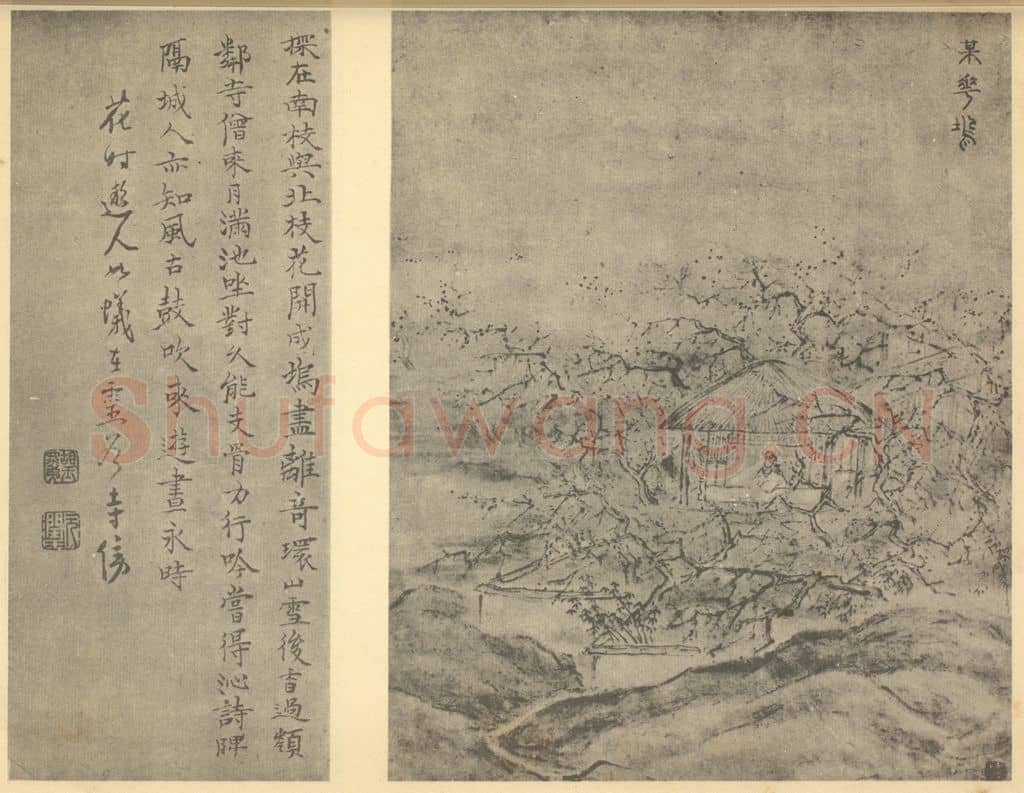 某華塢
探在南枝與北枝花開成塢盡離奇環山雪後香過嶺
鄰寺僧來月滿池坐對久能支骨力行吟嘗得沁詩脾
隔城人亦知風古鼓吹來遊晝永時
花時遊人如蟻在靈谷寺傍
Shufawang.CN